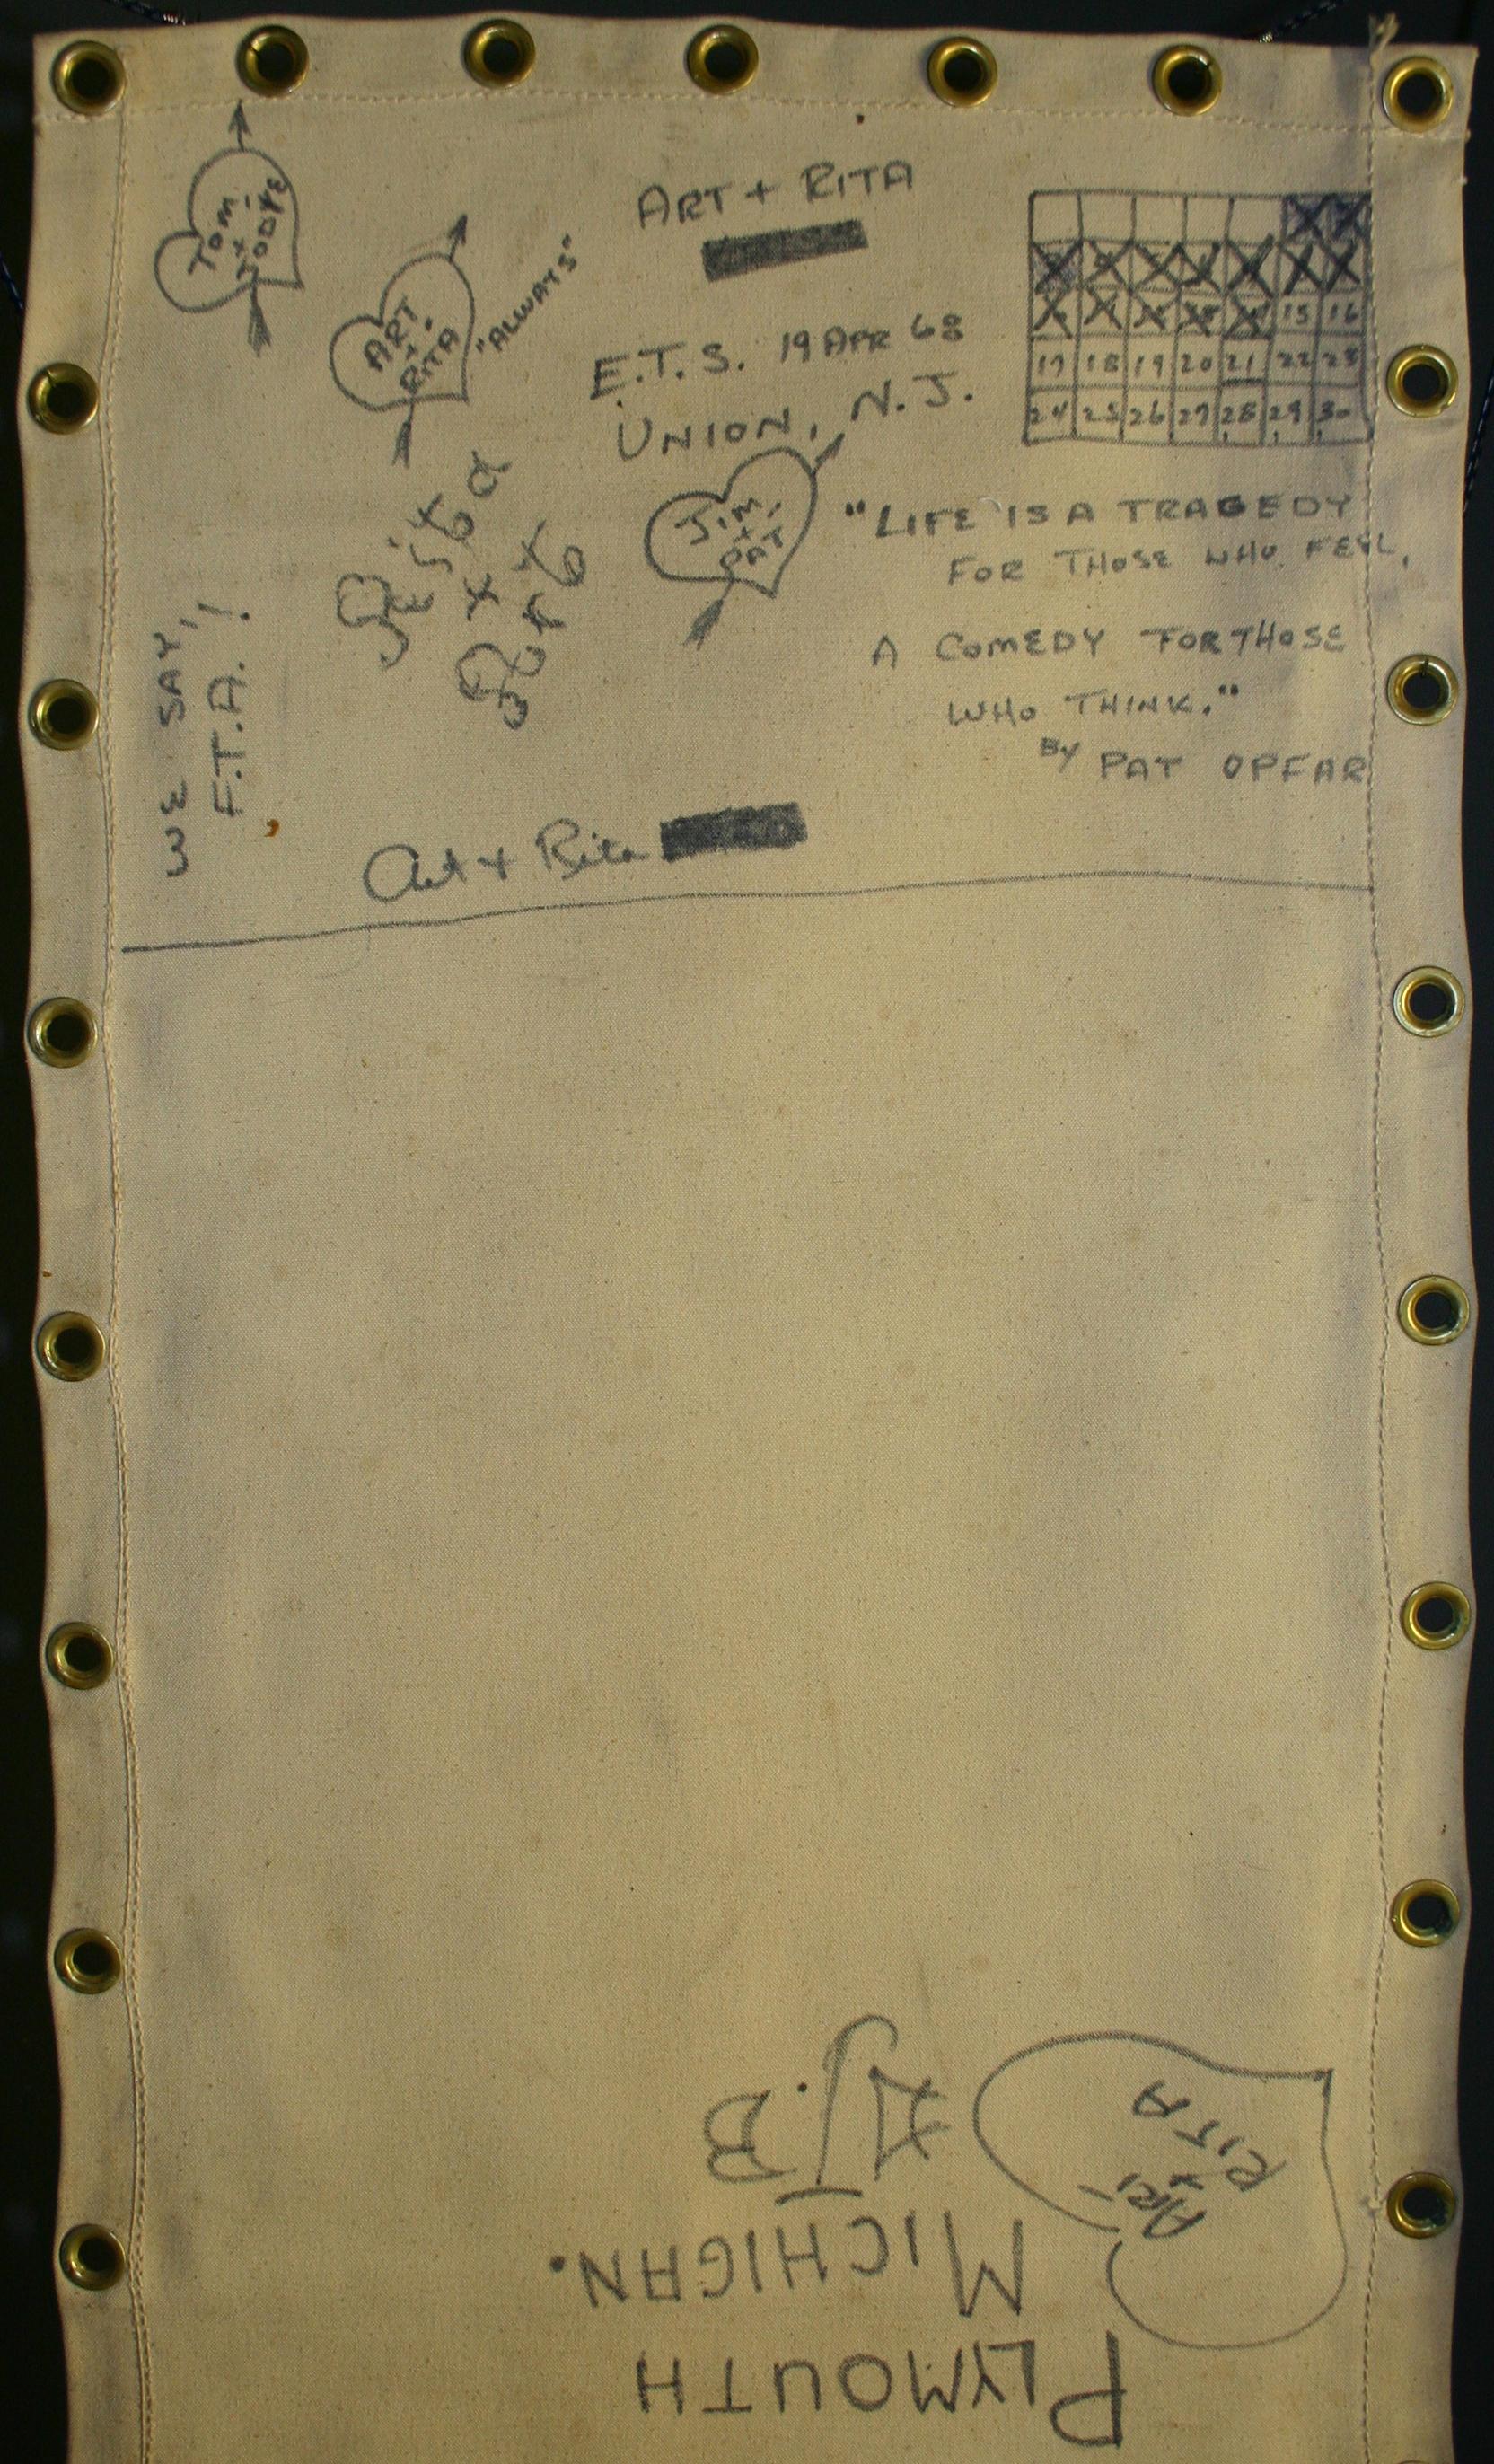 TOM
+
JODYE
ART
+
RITA
"ALWAYS"
ART + RITA
E.T.S. 19 APR 68
UNION, N.J.
15 16
17 18 19 20 21 22 23
24 25 26 27 28 29 30
Rita
+
Art
JIM
+
PAT
"LIFE IS A TRAGEDY
FOR THOSE WHO FEEL,
A COMEDY FOR THOSE
WHO THINK."
BY PAT OPFAR
WE SAY,
F.T.A.!
Art + Rita
PLYMOUTH
MICHIGAN.
ART
+
RITA